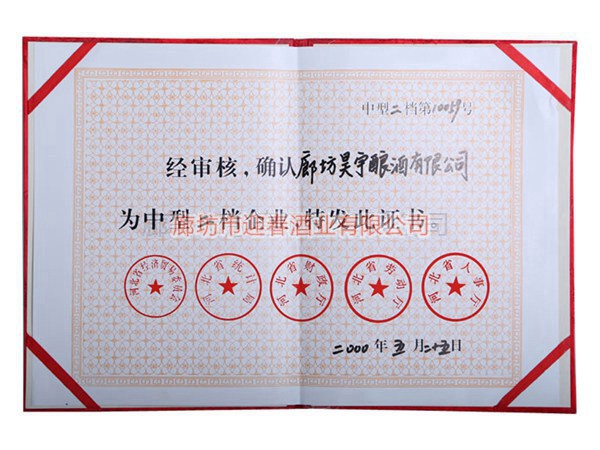 中型二档第10059号
经审核，确认廊坊昊宇酿酒有限公司
为中型二档企业，特发此证书
廊坊市迎春酒业有限公司
河北省经济贸易委员会
河北省统计局
河北省财政厅
河北省劳动厅
河北省人事厅
二000年五月二十五日